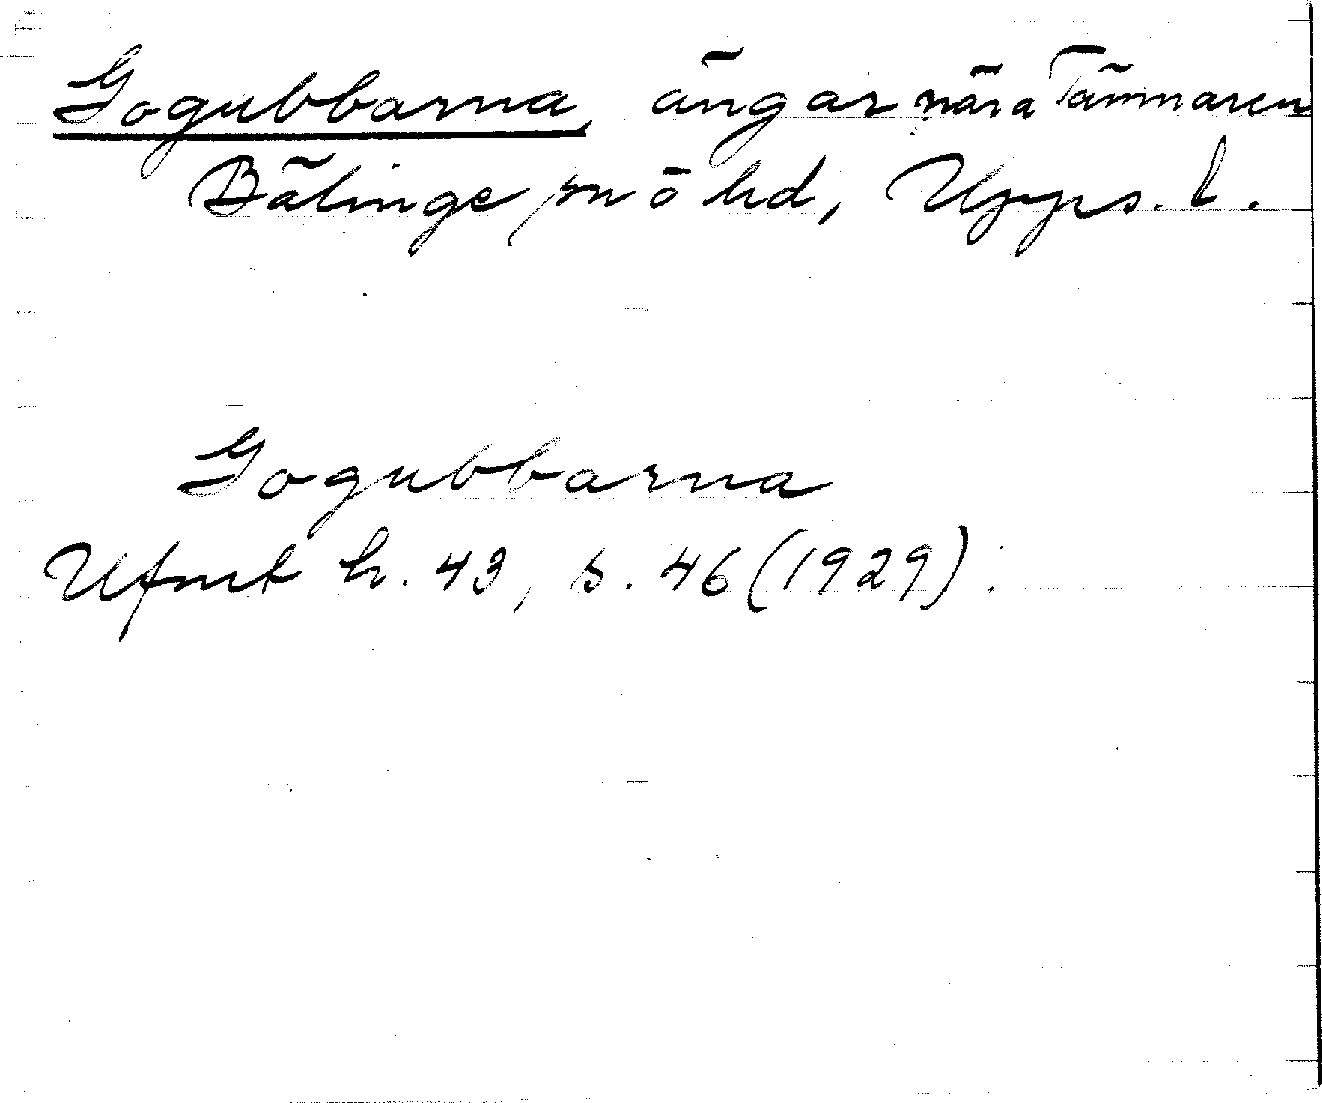 Gogubbarna, ängar nära Tämnaren
Bälinge sn o hd, Upps. l.
Gogubbarna
Ufmt h. 43, s. 46 (1929).